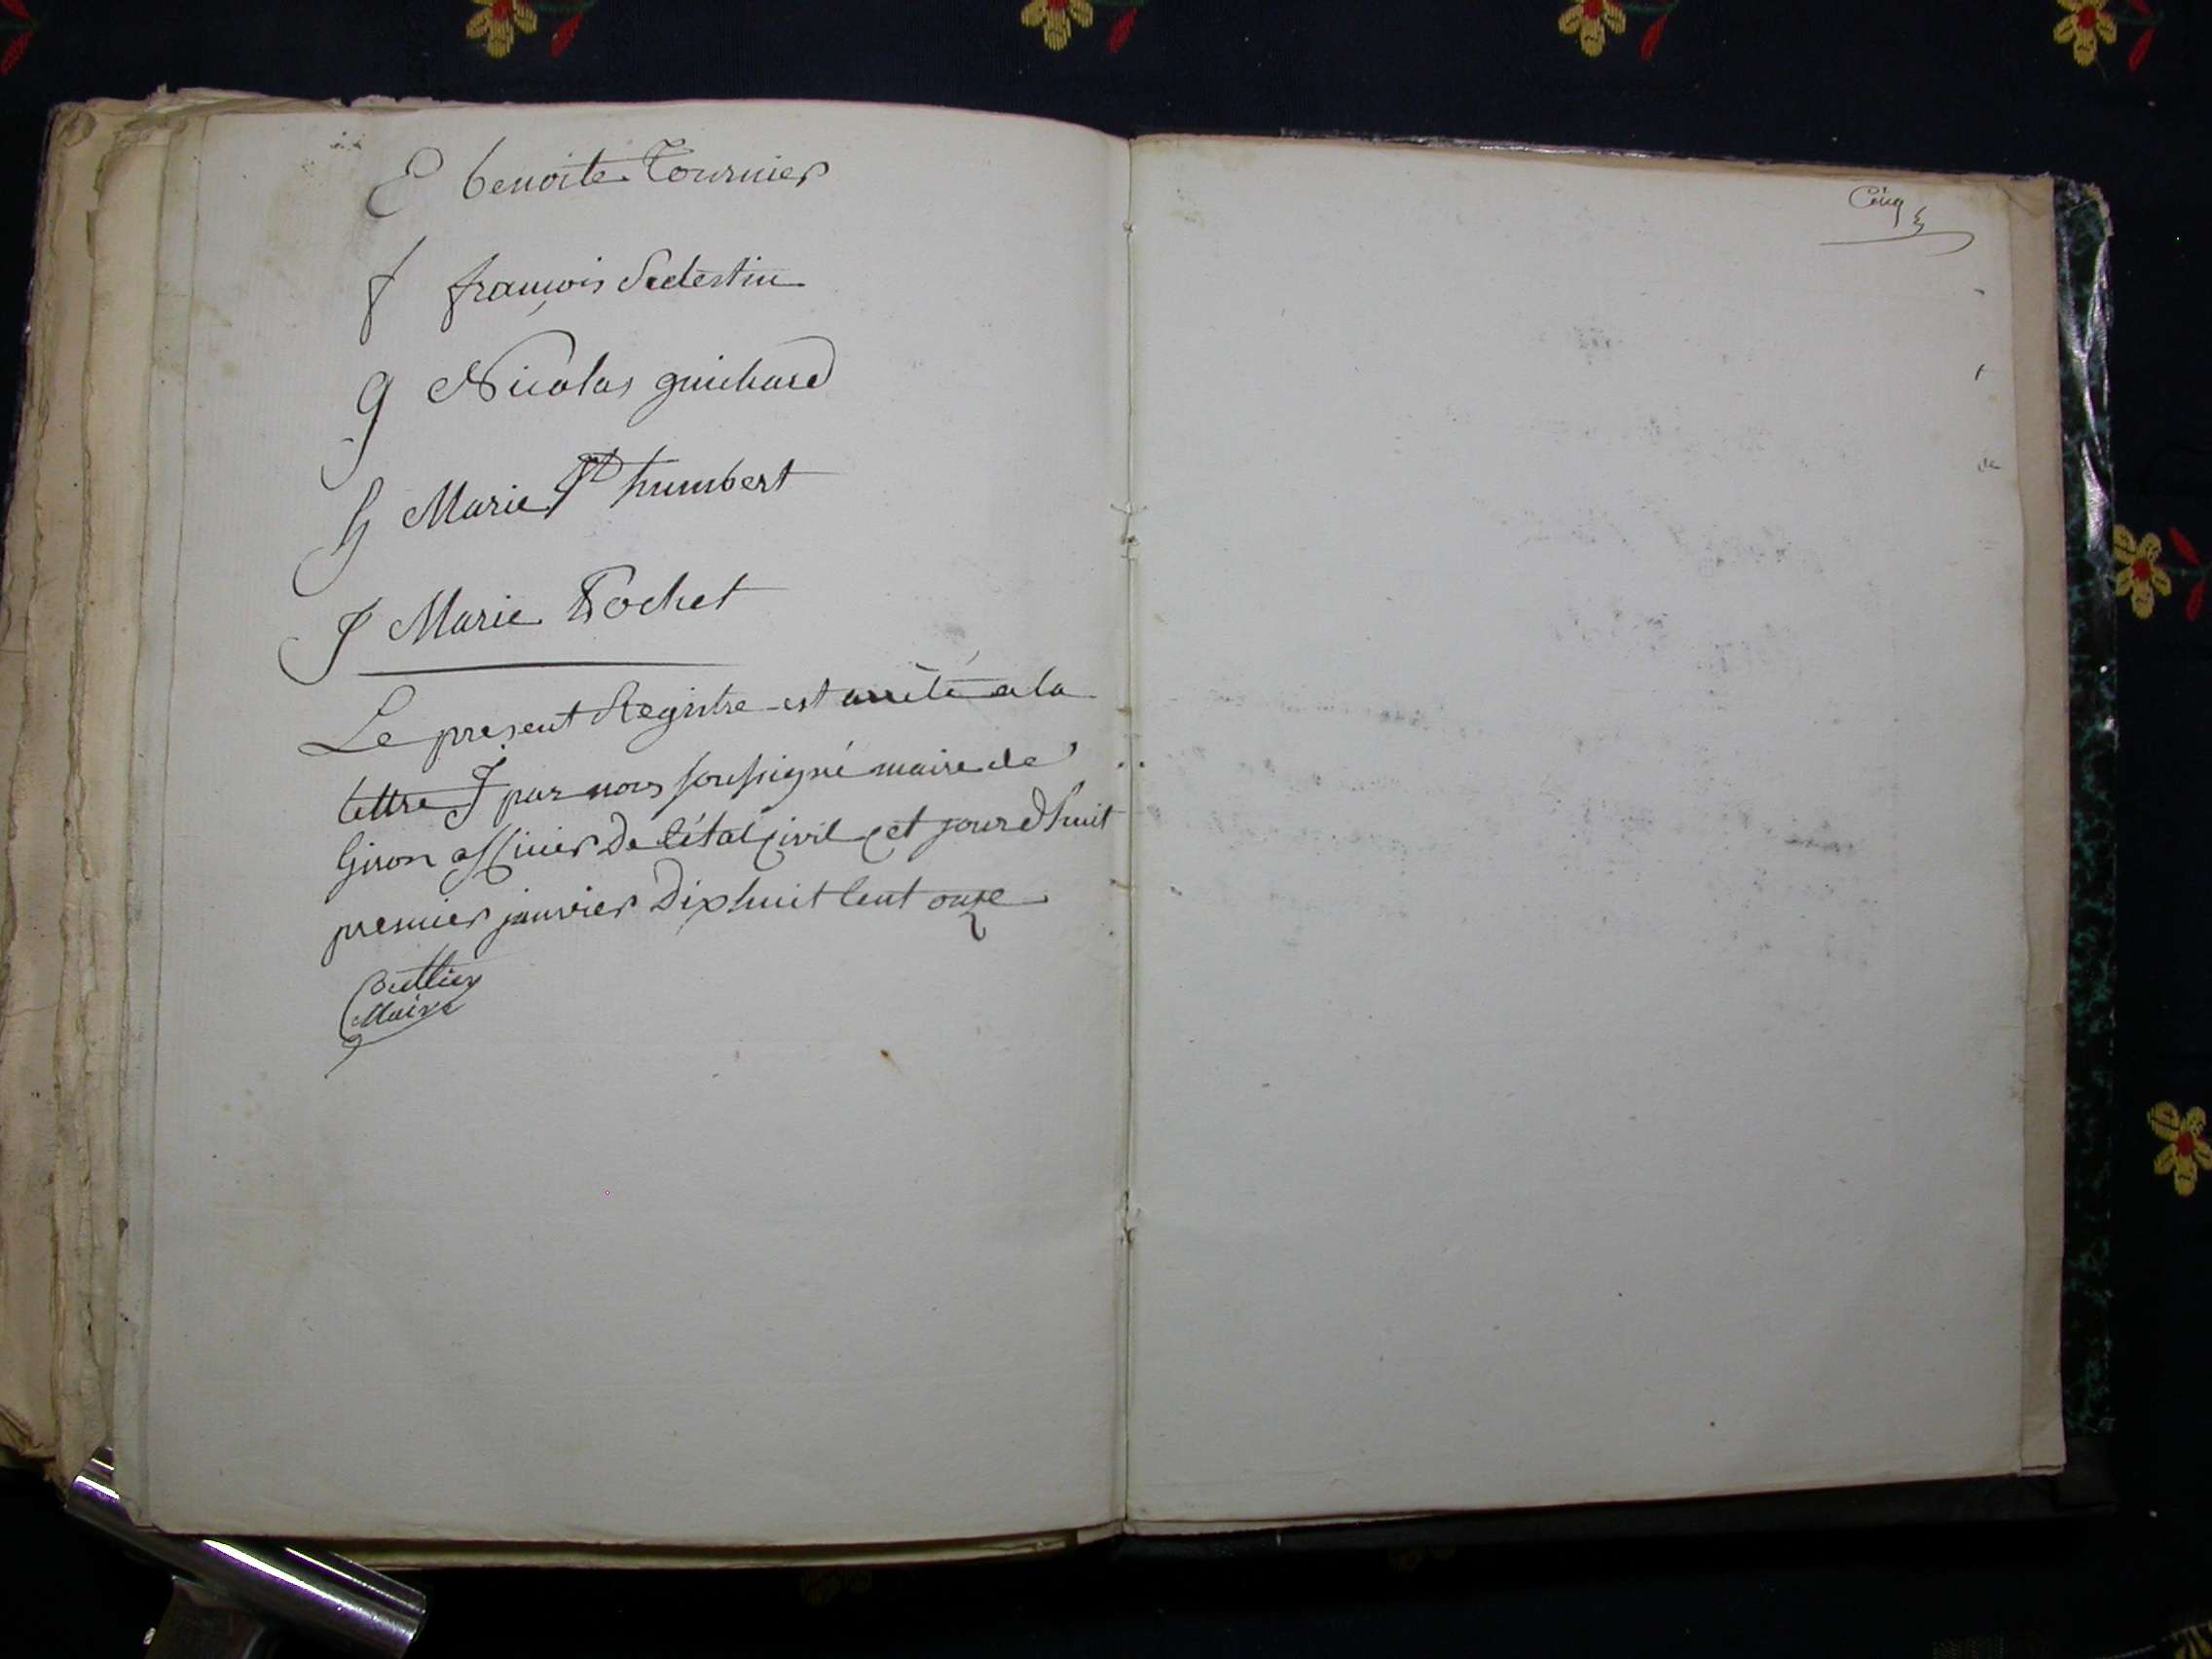 E benoite Tournier
f françois Sedestin
g Nicolas guichard
h Marie Jh humbert
J Marie Pochet
Le present Registre est arrêté a la
lettre J par nous soussigné maire de
Giron officier De l'état Civil cet jourd'huit
premier janvier Dix huit Cent onze
Maire
Cinq